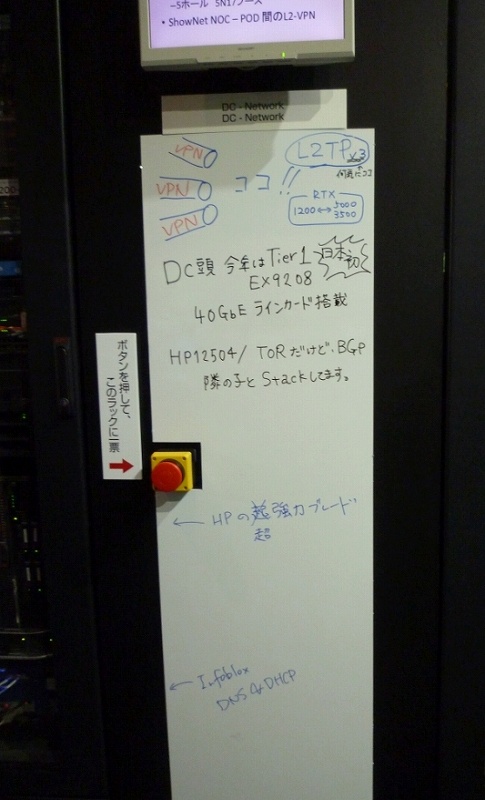 -5ホール 5N17ブース
• ShowNet NOC – POD 間のL2-VPN
DC - Network
DC - Network
VPN
VPN
VPN
ココ!!
L2TPv3
RTX
1200 ↔ 5000
3500
DC頭 今年はTier1
日本初
EX9208
40GbE ラインカード搭載
HP12504/ ToRだけど、BGP
隣の子と Stackしてます。
ボタンを押して、
このラックに一票
← HPの強力ブレード
超
← Infoblox
DNS & DHCP